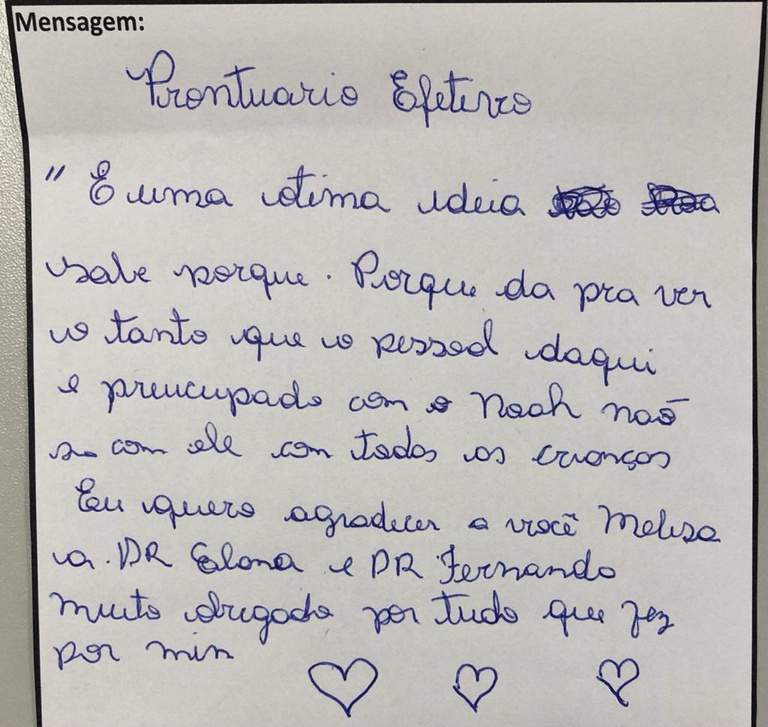 Mensagem:
Prontuario Efetivo
" E uma otima ideia
sabe porque. Porque da pra ver
o tanto que o pessoal daqui
e preucupado com o Noah não
so com ele con todas as crianças
Eu quero agradecer a você Melisa
a. DR Elana e DR Fernando
muito obrigada por tudo que fez
por min